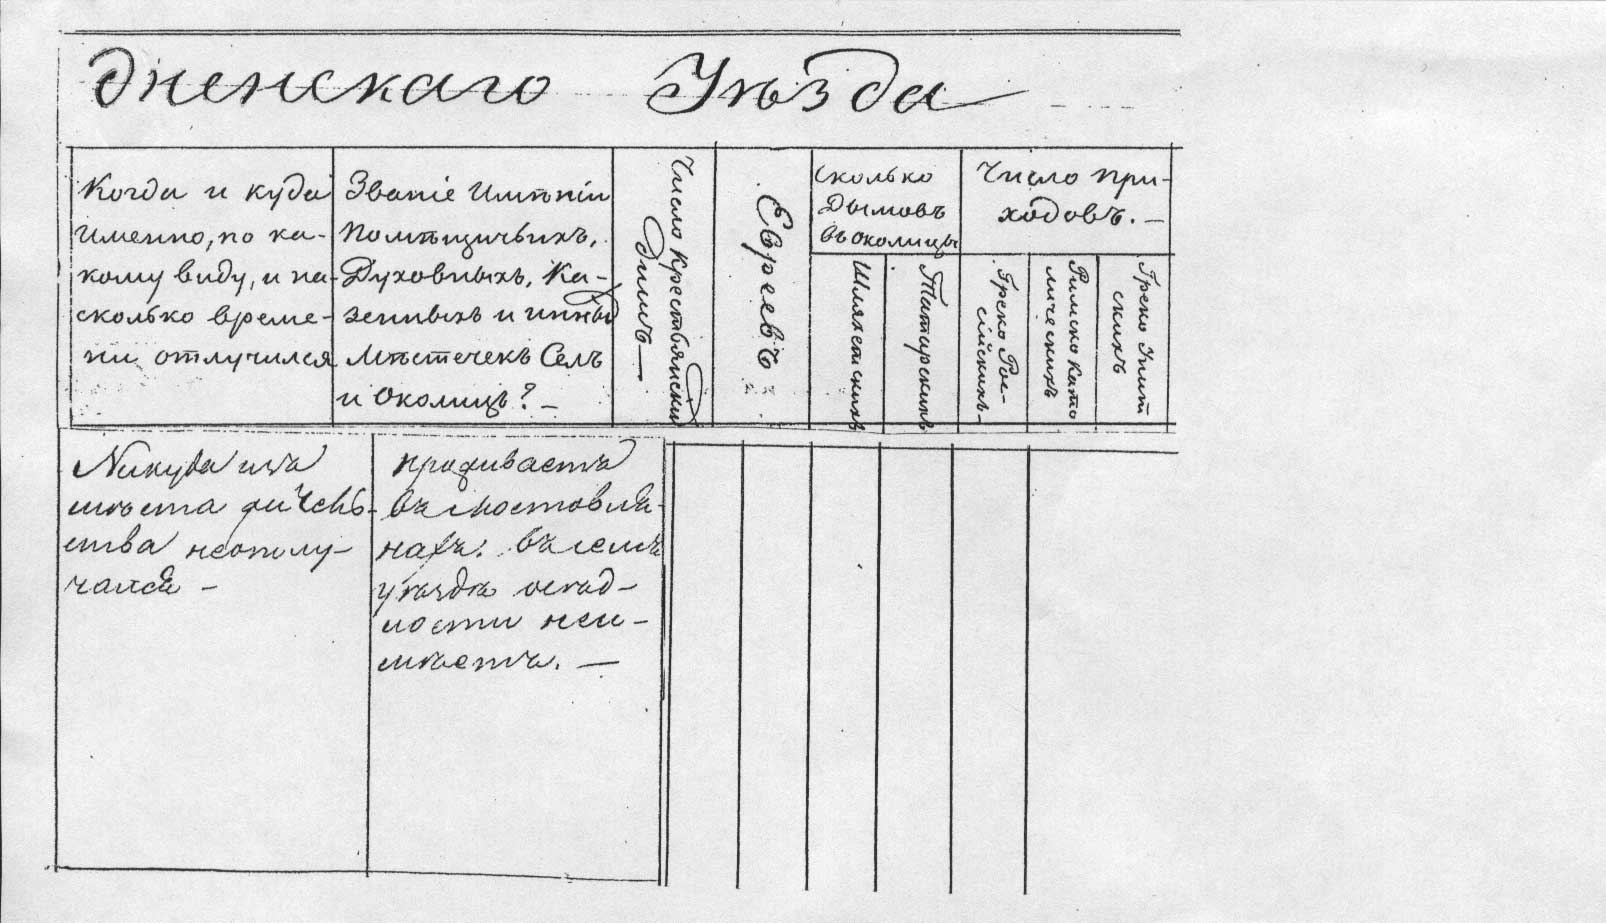 дненскаго Уѣзда
Когда и куда
именно, по ка-
кому виду, и на-
сколько време-
ни отлучился
Званіе Имѣній
Помѣщичьихъ,
Духовныхъ, Ка-
зенныхъ и иныхъ
Мѣстечекъ Селъ
и Околицъ? —
Число Крестьянскихъ
Дымъ —
Евреевъ
Сколько
Дымовъ
въ околицы
Шляхетскихъ
Татарскихъ
Число при-
ходовъ. —
Греко Рос-
сійскихъ —
Римско Като
лическихъ
Греко Унит
скихъ
Никуда изъ
мѣста
ства неотлу-
чался —
проживаетъ
въ Мостовля-
нахъ. въ семъ
уѣздѣ осѣд-
лости неи-
мѣетъ. —